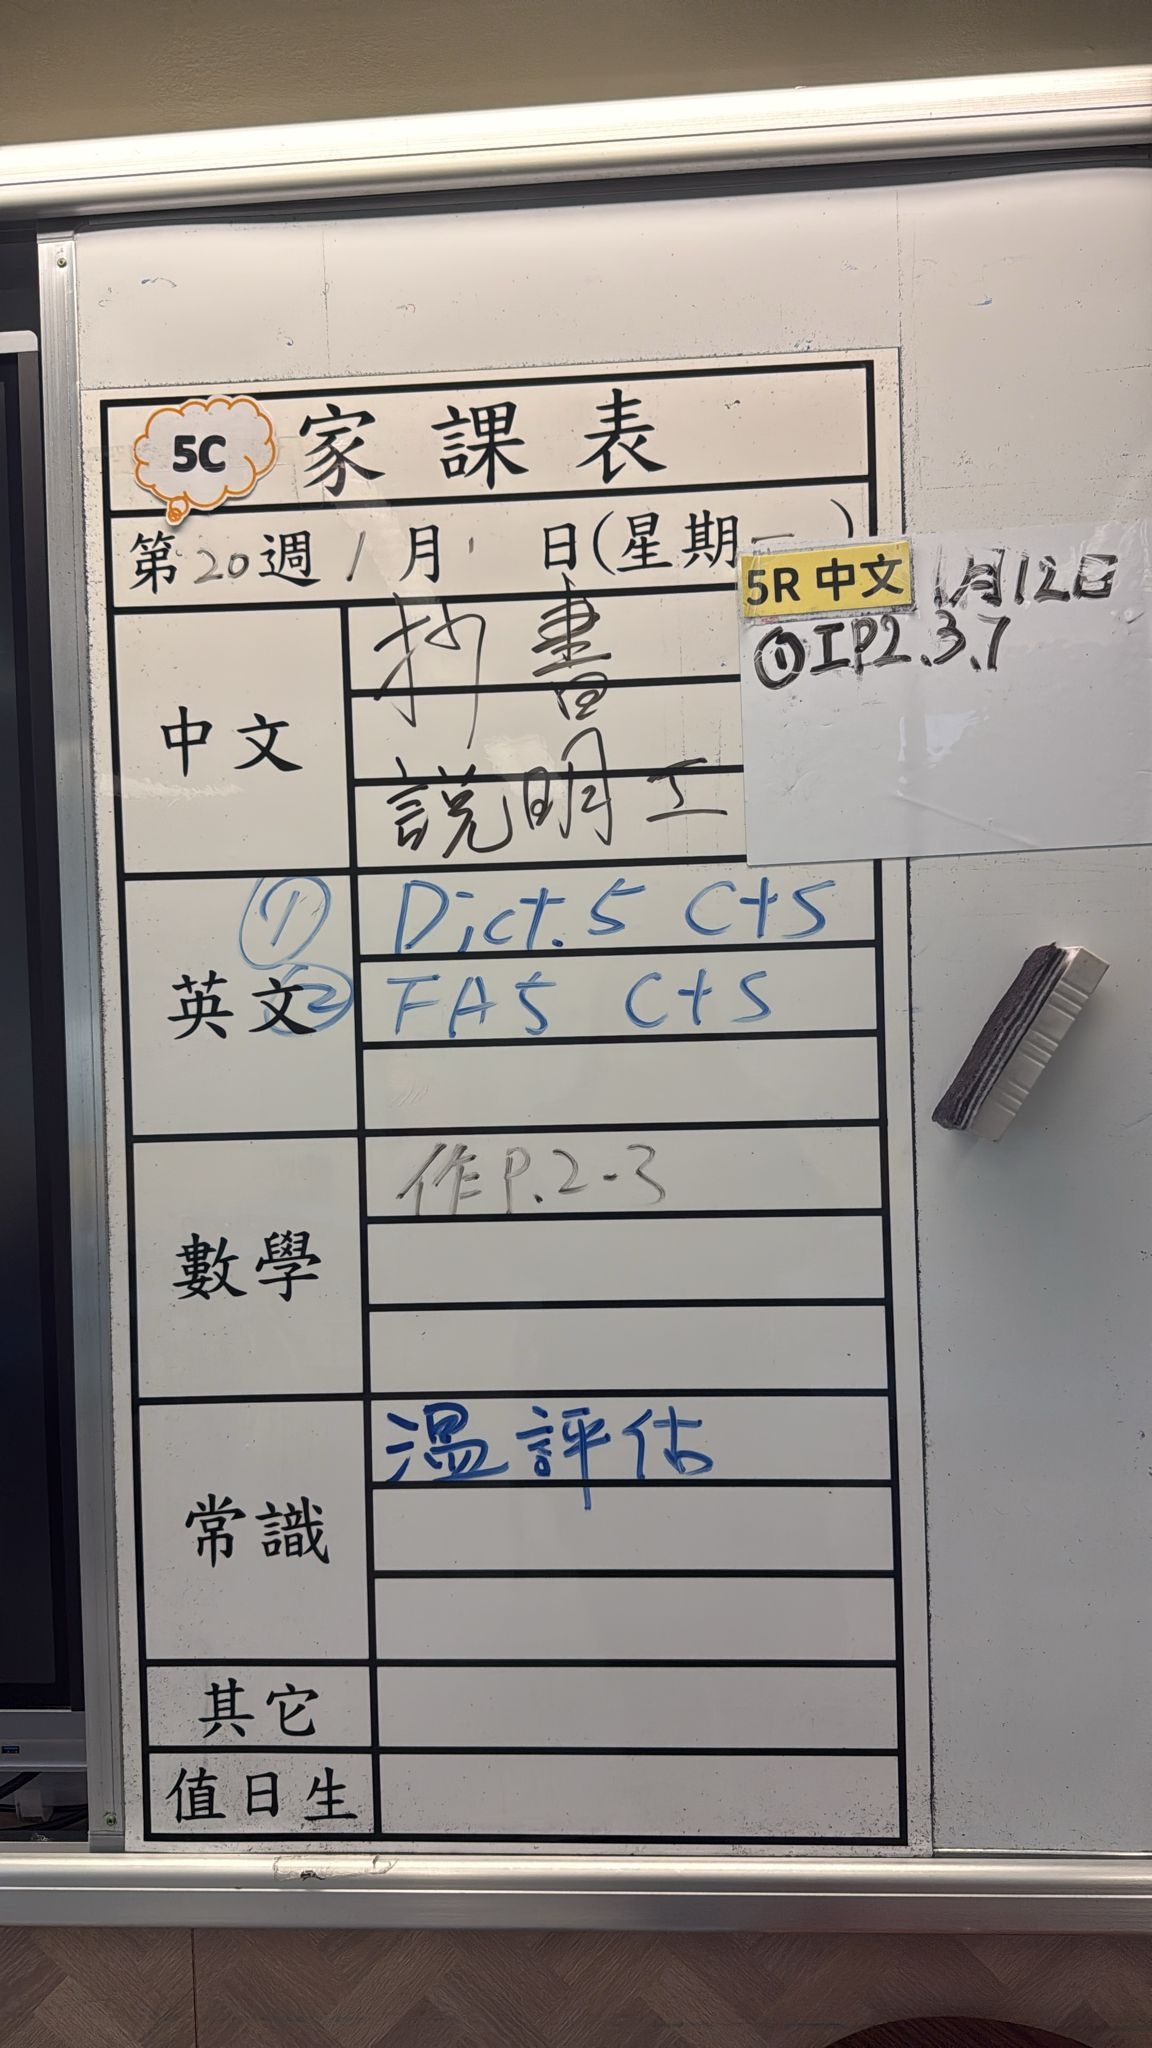 5C 家課表
第20週 1月 日(星期一 )
5R 中文 1月12日
①工P2.3.7
中文
抄書
說明工
英文
① Dict.5 Cts
② FA5 Cts
數學
作P.2-3
常識
溫評估
其它
值日生